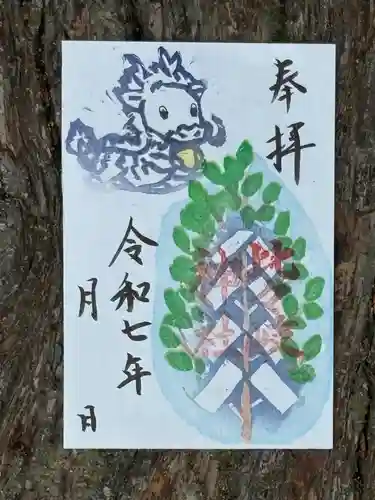 奉拝
令和七年
月
日